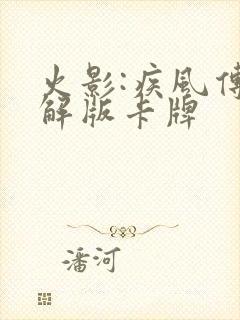 火影:疾風傳
解版卡牌
潘河